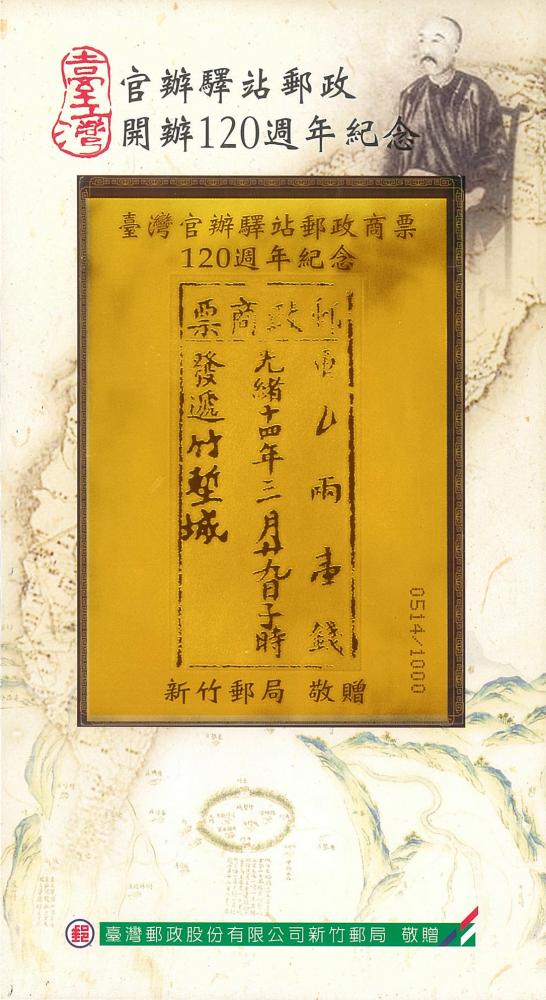 臺灣
官辦驛站郵政
開辦120週年紀念
臺灣官辦驛站郵政商票
120週年紀念
票商政郵
重乙兩壹錢
光緒十四年三月廿九日子時
發遞竹塹城
0514/1000
新竹郵局 敬贈
郵
臺灣郵政股份有限公司新竹郵局 敬贈